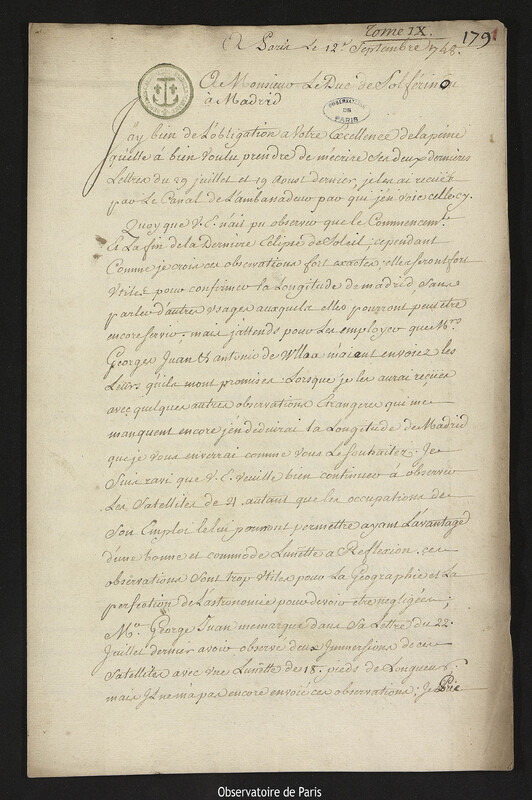 Tome IX.
179
A Paris Le 12e. Septembre 1748.
A Monsieur Le Duc de Solferino
à Madrid
OBSERVATOIRE
DE
PARIS
J'ay bien de L'obligation a Votre Excellence de la peine
qu'elle à bien voulu prendre de m'écrire Ses deux dernieres
Lettres du 29 juillet et 19 Aoust dernier, je les ai receües
par Le Canal de L'ambassadeur par qui j'en voie celle cy.
Quoy que V. E. n'ait pu observer que le Commencemt.
Et La fin de la Derniere Eclipse de Soleil; cependant
Comme je crois ces observations fort exactes, elles seront fort
Utiles pour confirmer la Longitude de madrid, Sans
parler d'autres usages auxquels elles pourront peut être
encore Servir. mais j'attends pour Les employer que Mrs.
Georges Juan & antonio de Ulloa m'aient envoiez les
Leurs qu'ils m'ont promises. Lorsque je les aurai reçües
avec quelques autres observations Etrangeres qui me
manquent encore j'en déduirai la Longitude de Madrid
que je vous enverrai comme vous Le Souhaitez. Je
Suis ravi que V. E. veuille bien continuer à observer
Les Satellites de ♃ autant que les occupations de
Son Emploi le lui pourront permettre ayant L'avantage
d'une bonne et commode Lunette a Reflexion. ces
observations Sont trop Utiles pour La Geographie et La
perfection de L'astronomie pour devoir etre negligées;
Mr. George Juan me marque dans Sa Lettre du 22.
Juillet dernier avoir observé deux Immersions de ces
Satellites avec une Lunette de 18. pieds de Longueur;
mais Il ne m'a pas encore envoié ces observations; Je Prie
Observatoire de Paris